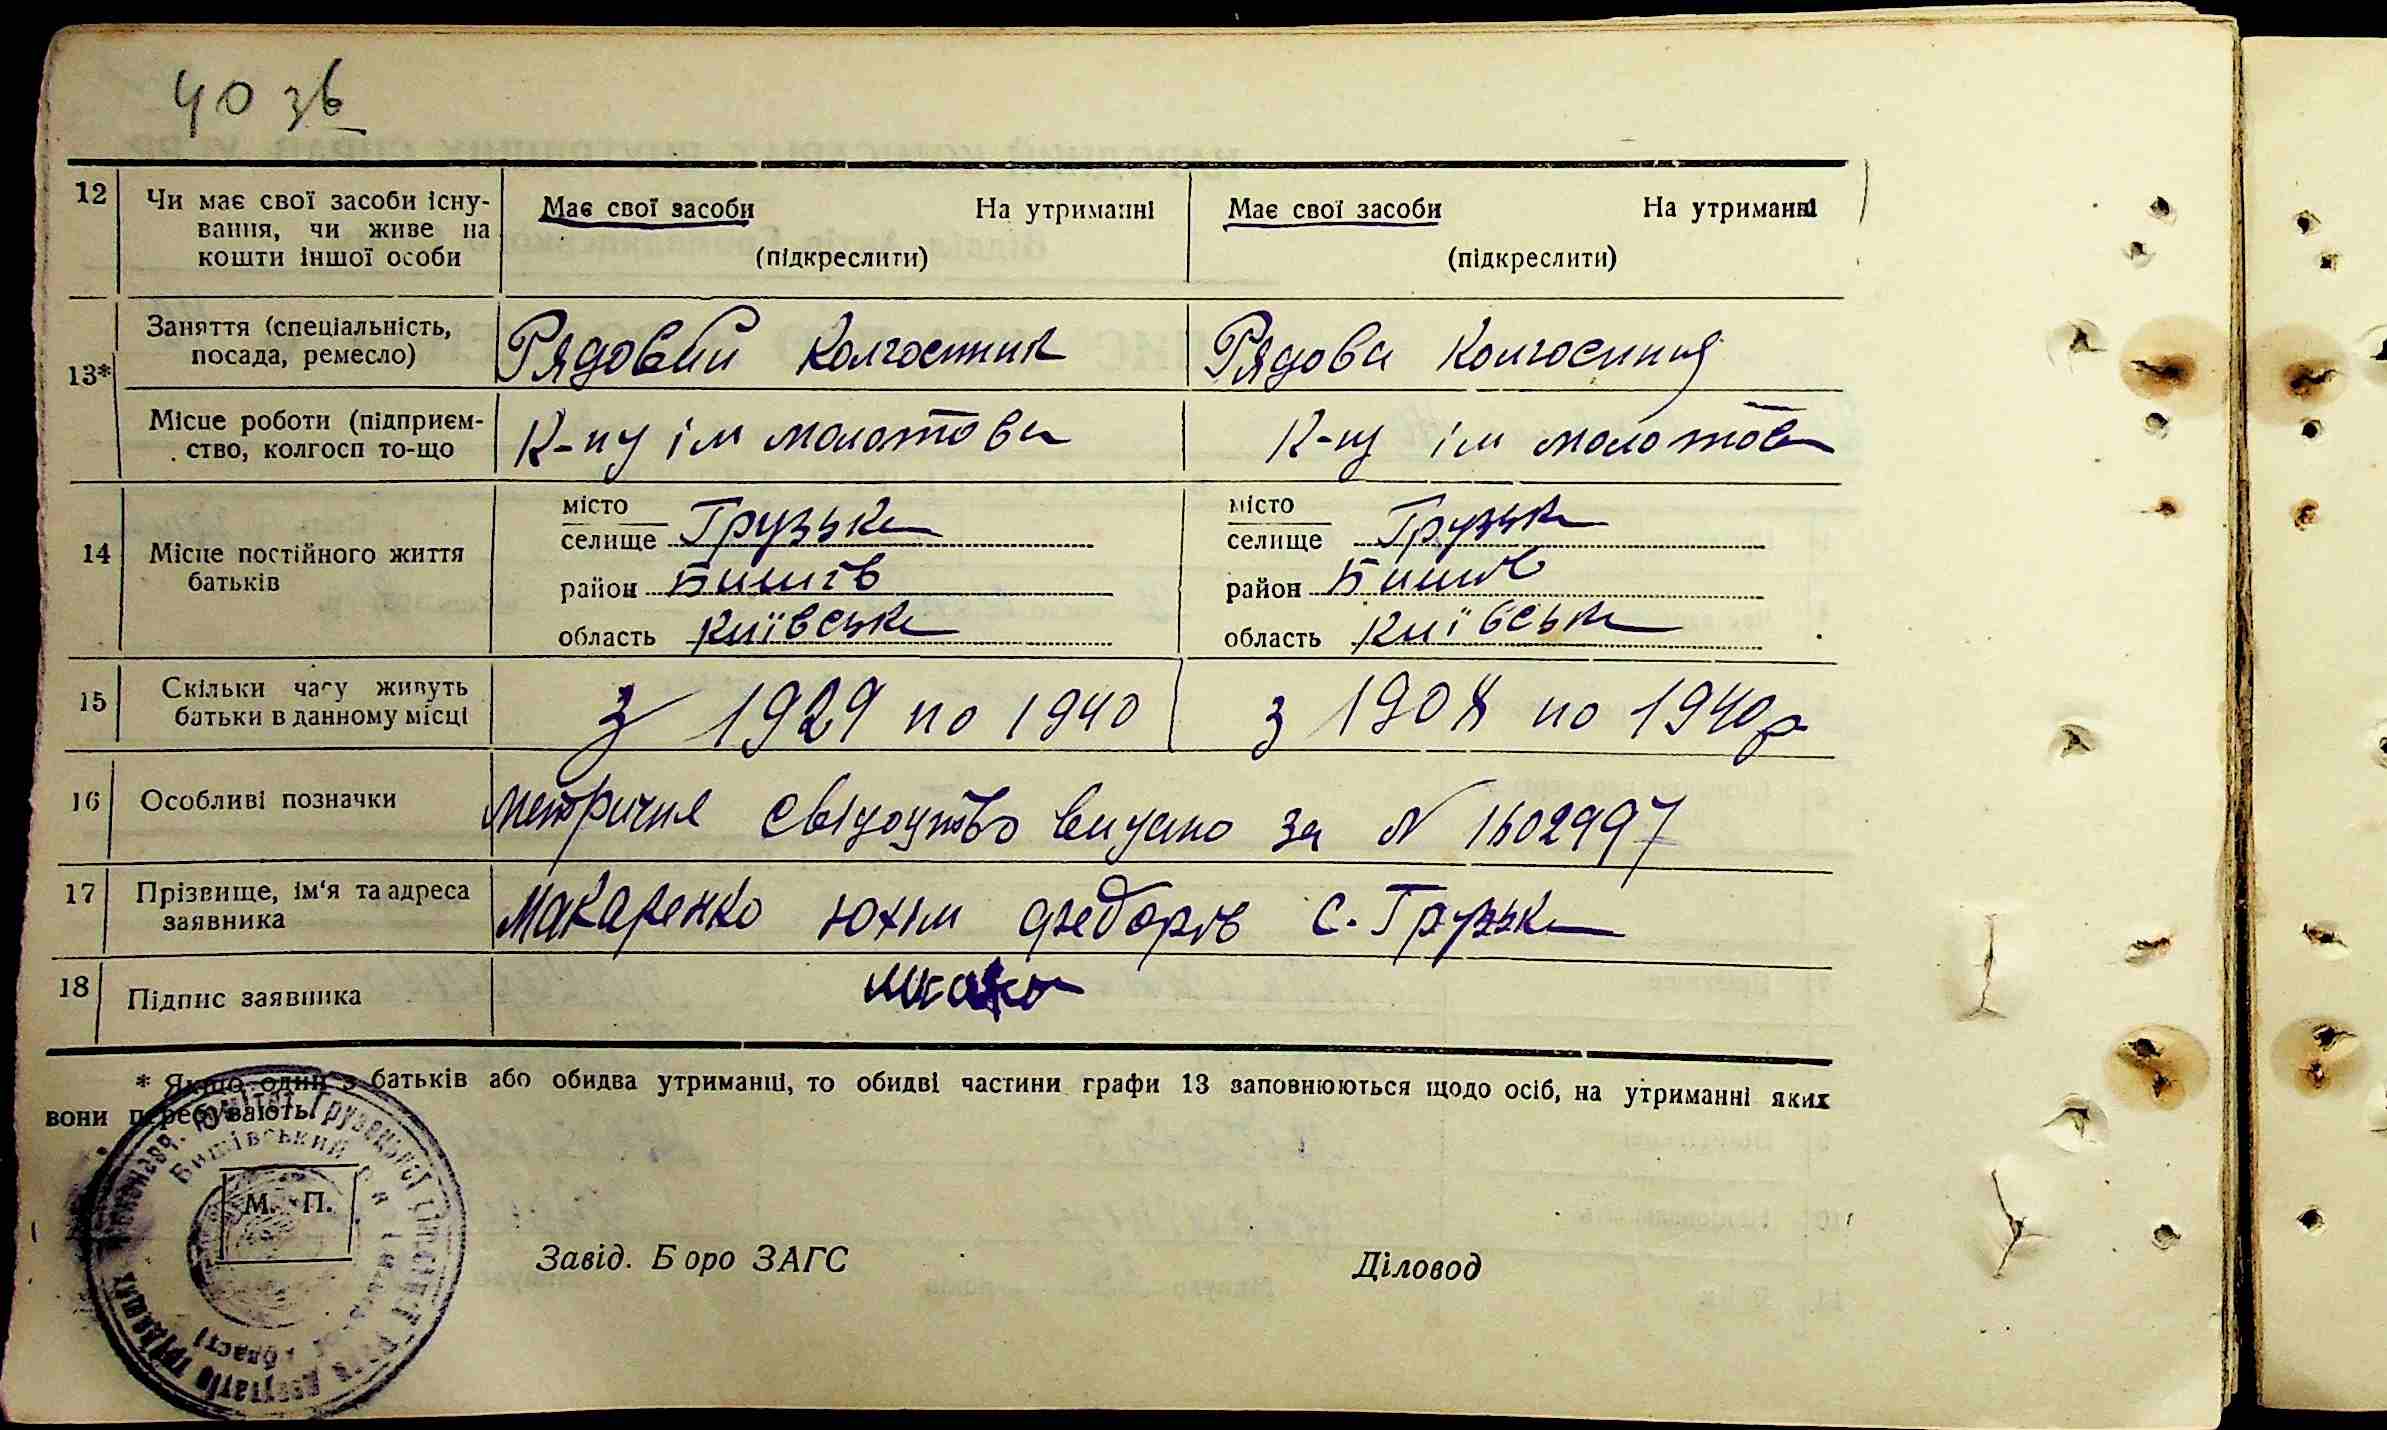 40 зв
12 Чи має свої засоби існу- Має свої засоби На утриманні Має свої засоби На утриманні
вання, чи живе на
кошти іншої особи (підкреслити) (підкреслити)
13* Заняття (спеціальність, Рядовий колгоспник Рядова колгоспниця
посада, ремесло)
Місце роботи (підприєм- К-пу ім молотова К-пу ім молотова
ство, колгосп то-що
14 Місце постійного життя батьків
місто
селище Грузька
район Бишів
область Київська
місто
селище Грузька
район Бишів
область Київська
15 Скільки часу живуть з 1929 по 1940 з 1908 по 1940р
батьки в данному місці
16 Особливі позначки метричне свідоцтво видано за N 1602997
17 Прізвище, ім'я та адреса Макаренко Юхім Федорів с. Грузька
заявника
18 Підпис заявника
* Якщо один з батьків або обидва утриманці, то обидві частини графи 13 заповнюються щодо осіб, на утриманні яких
вони перебувають.
Виконавч. Комітет Грузецької сільської ради депутатів трудящих
Бишівський р-н
області
М. П.
Завід. Боро ЗАГС Діловод